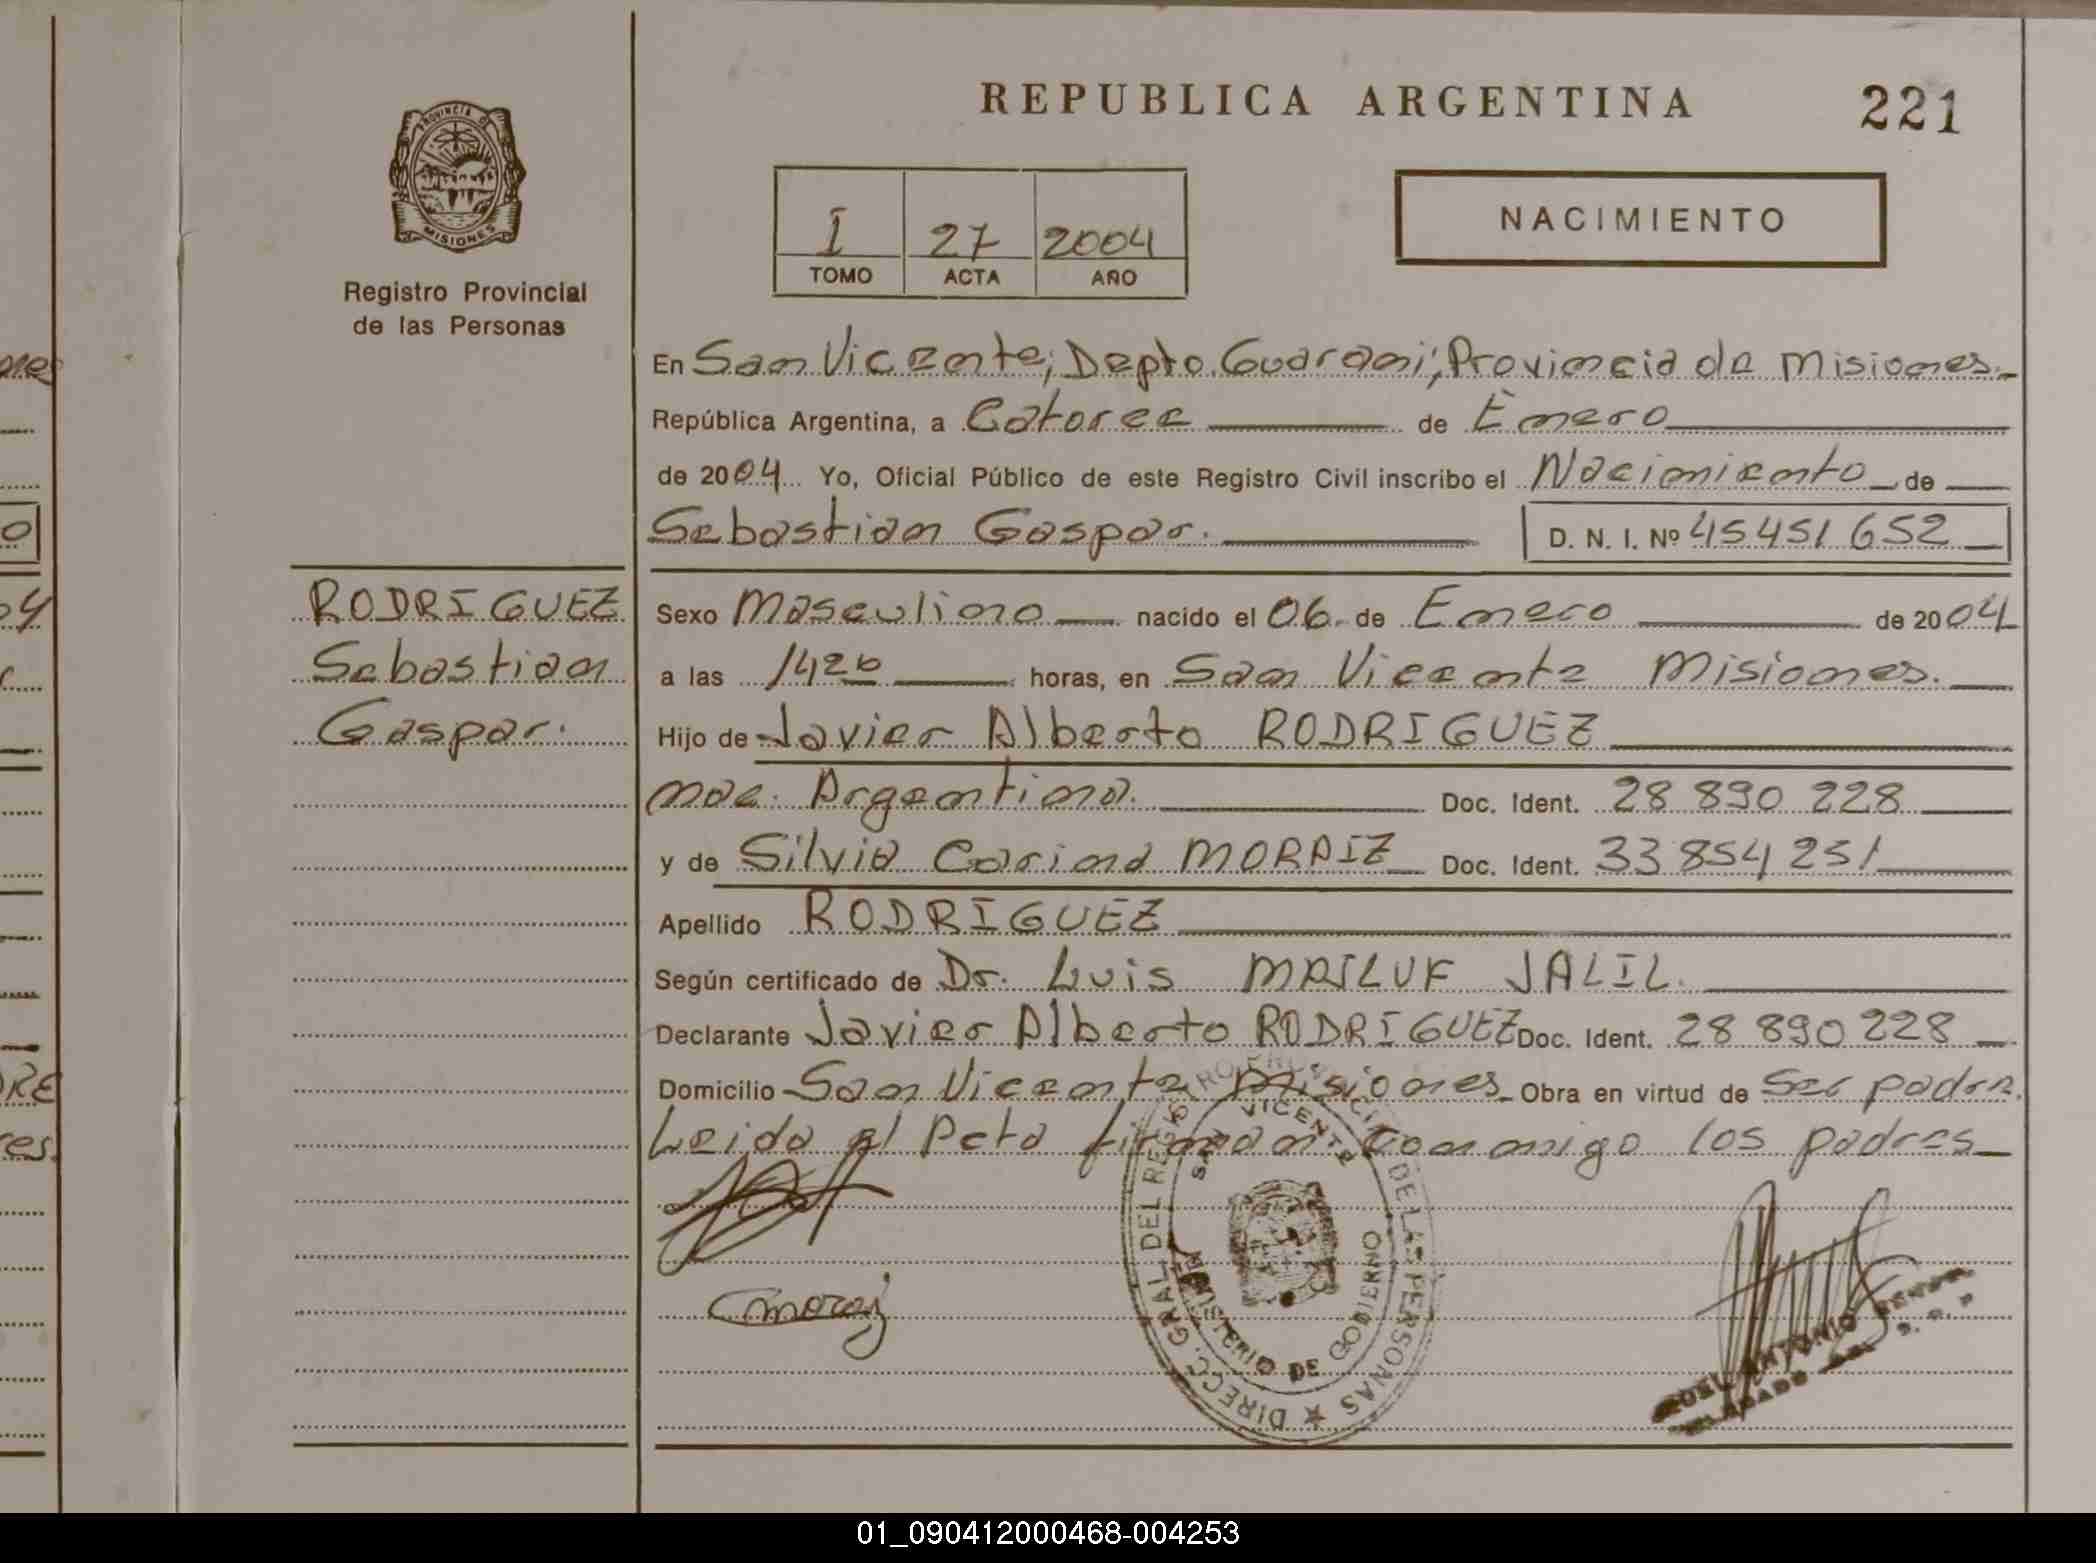 REPUBLICA ARGENTINA
221
PROVINCIA DE
MISIONES
Registro Provincial
de las Personas
I 27 2004
TOMO ACTA AÑO
NACIMIENTO
En San Vicente; Depto. Guarani; Provincia de Misiones.
República Argentina, a Catorce de Enero
de 2004 Yo, Oficial Público de este Registro Civil inscribo el Nacimiento de
Sebastian Gaspar. D. N. I. Nº 45 451 652
RODRIGUEZ
Sebastian
Gaspar.
Sexo Masculino nacido el 06 de Enero de 2004
a las 1420 horas, en San Vicente Misiones.
Hijo de Javier Alberto RODRIGUEZ
nac. Argentina. Doc. Ident. 28 890 228
y de Silvia Carina MORAIZ Doc. Ident. 33 854 251
Apellido RODRIGUEZ
Según certificado de Dr. Luis MAILUF JALIL.
Declarante Javier Alberto RODRIGUEZ Doc. Ident. 28 890 228
Domicilio San Vicente Misiones Obra en virtud de Ser padre.
Leida el Acta firman conmigo los padres
DIRECC. GRAL. DEL REGISTRO PROVINCIAL DE LAS PERSONAS
SAN VICENTE
MINISTERIO DE GOBIERNO
ANTONIO
01_090412000468-004253